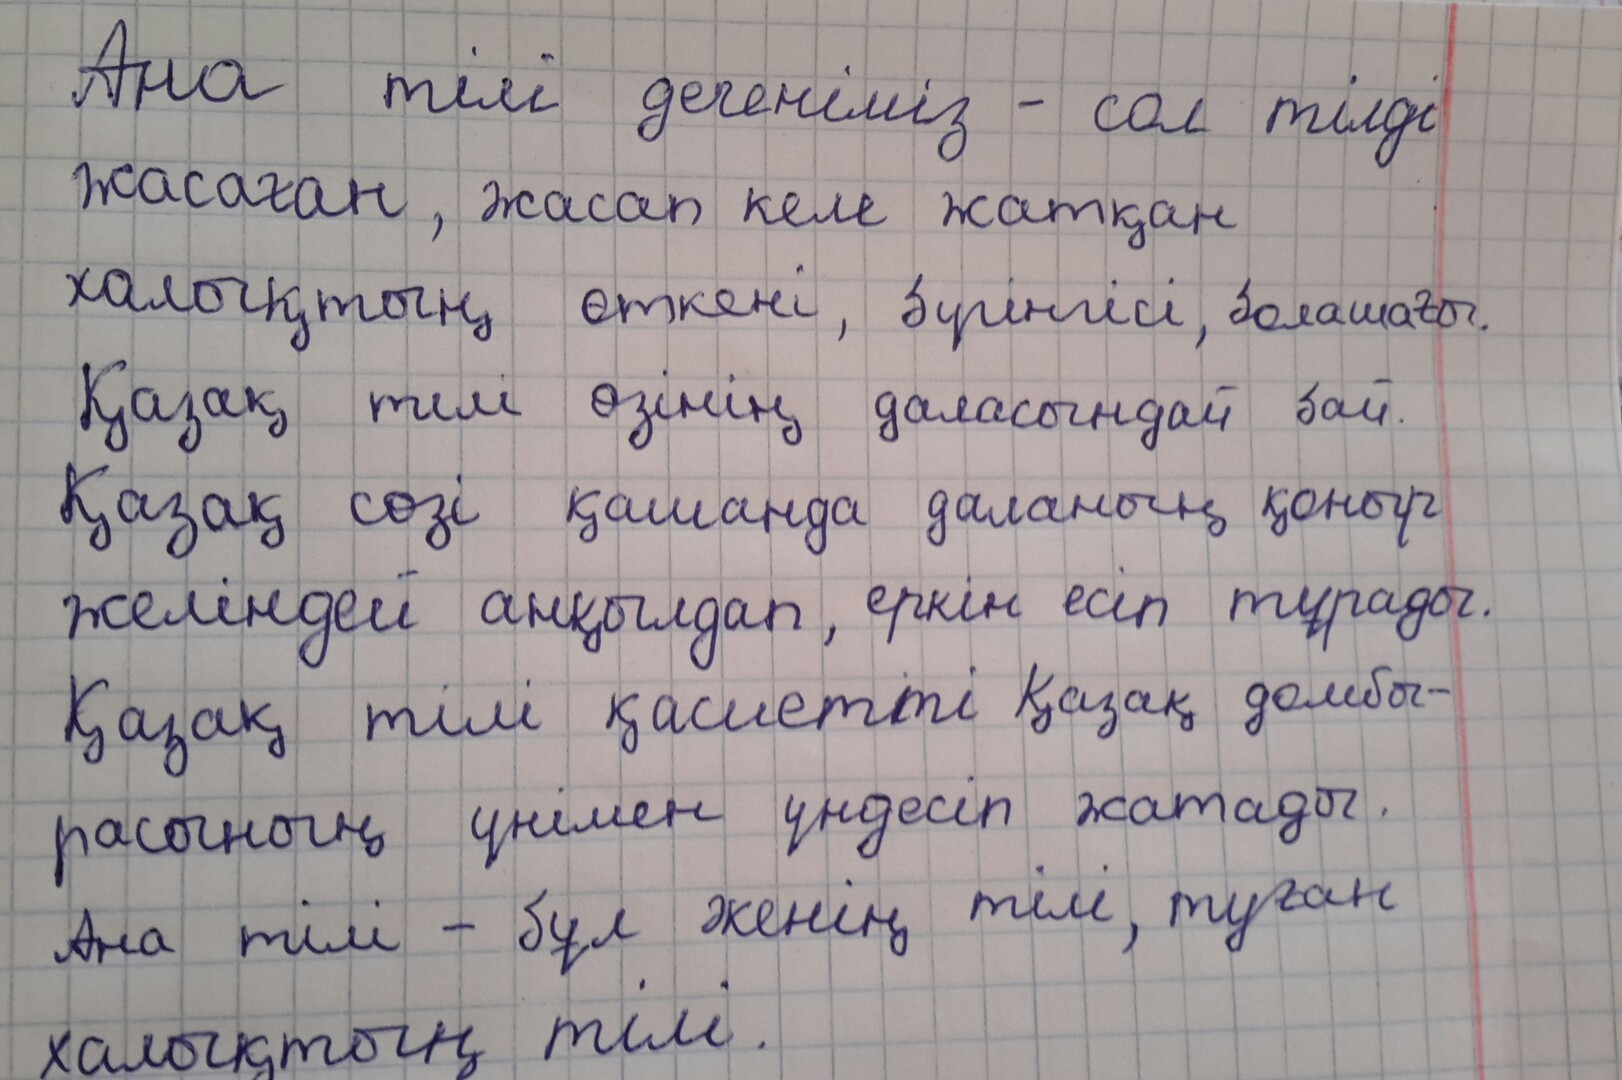 Ана тілі дегеніміз - сол тілді
жасаған, жасап келе жатқан
халықтың өткені, бүгінгісі, болашағы.
Қазақ тілі өзінің даласындай бай.
Қазақ сөзі қашанда даланың қоңыр
желіндей аңқылдап, еркін есіп тұрады.
Қазақ тілі қасиетті Қазақ домбы-
расының үнімен үндесіп жатады.
Ана тілі - бұл женің тілі, туған
халықтың тілі.